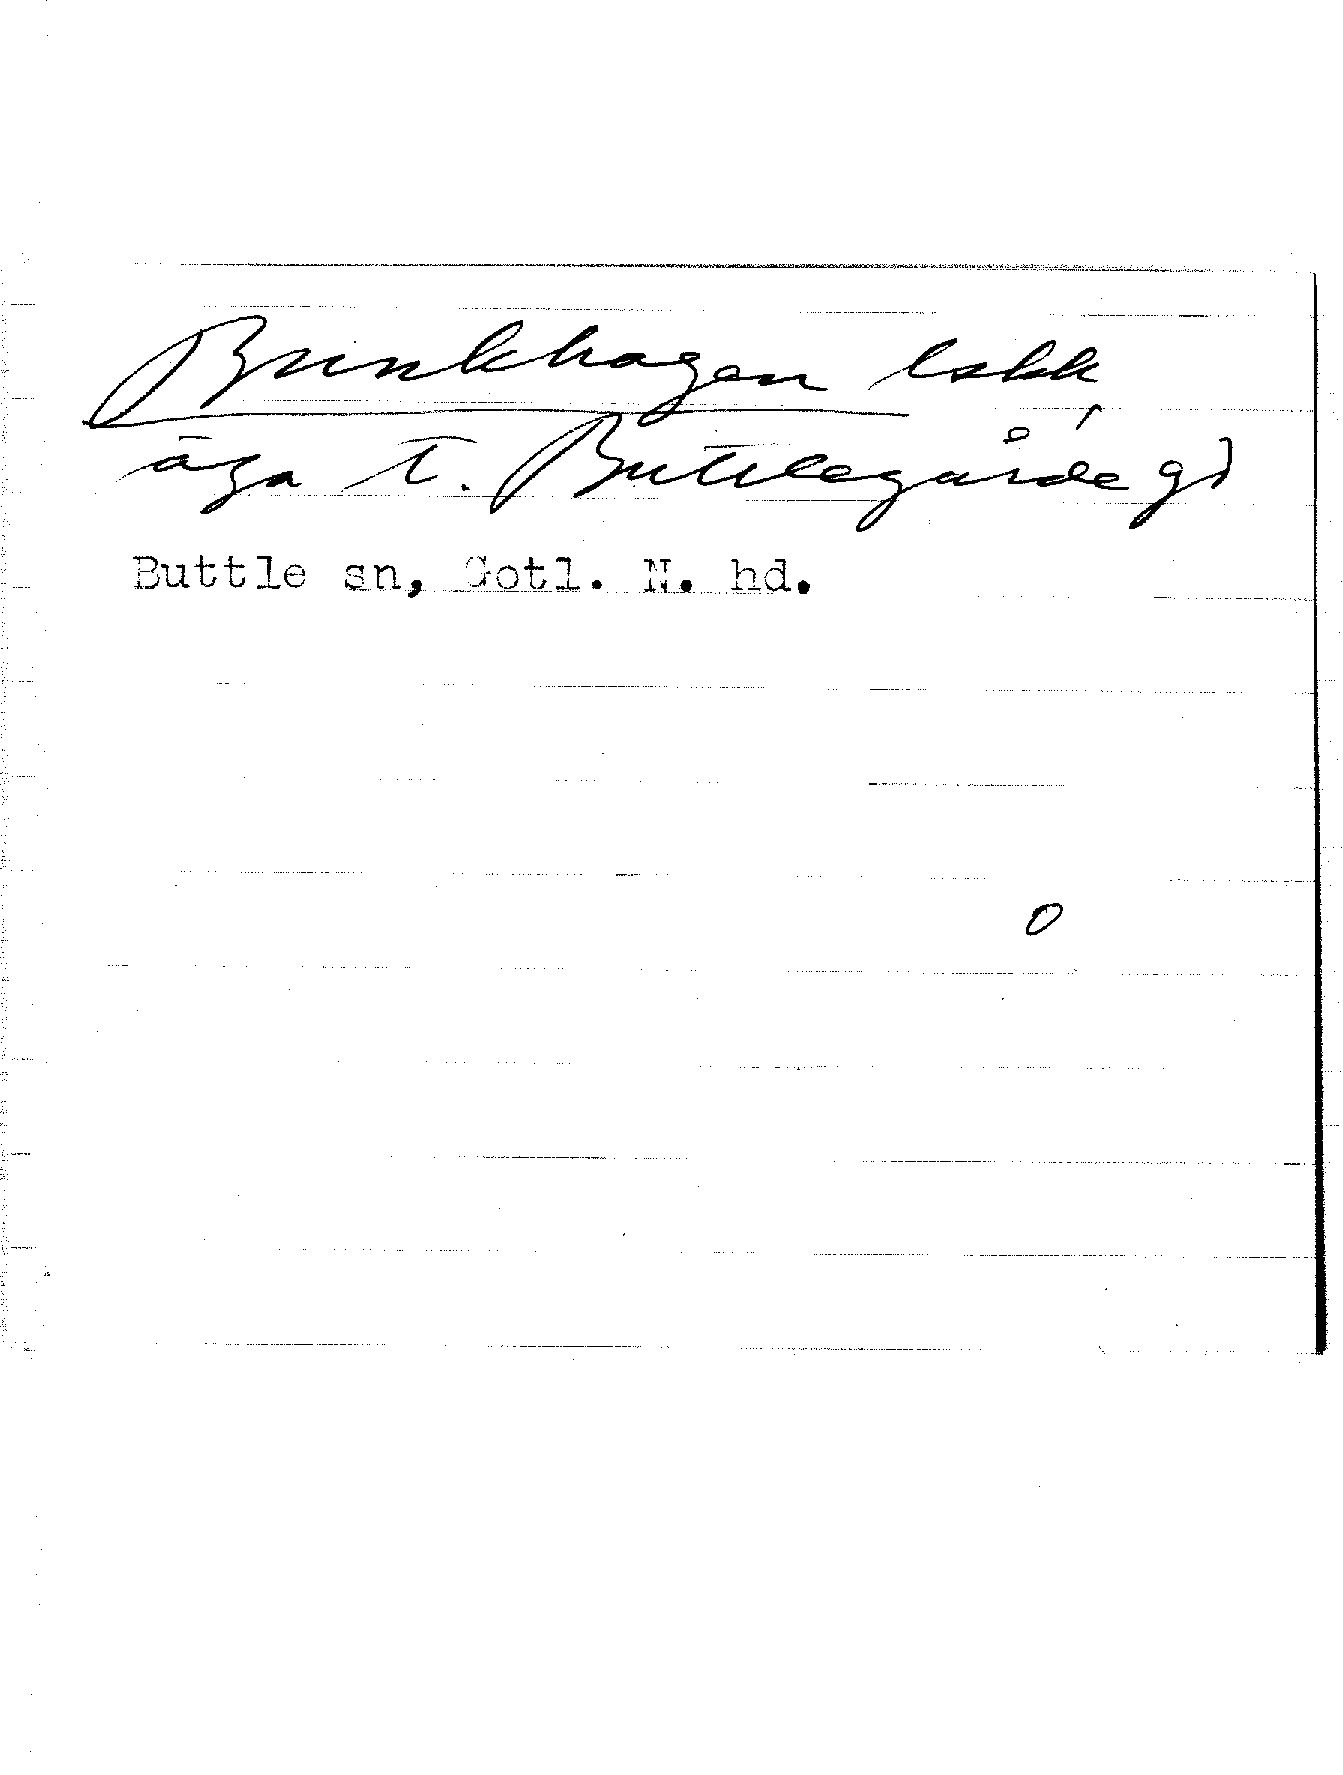 Brunkhagen lskk
äga t. Buttlegårde gd
Buttle sn, Gotl. N. hd.
O